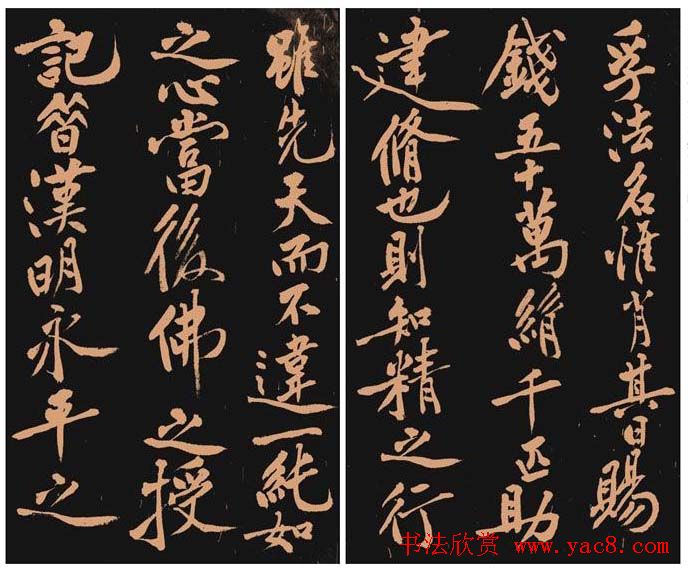 孚法名惟肖其日賜
錢五十萬絹千匹助
建脩也則知精之行
雖先天而不違一純如
之心當後佛之授
記昔漢明永平之
书法欣赏 www.yac8.com